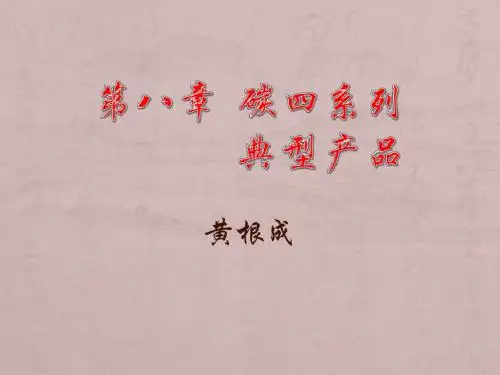 第八章 碳四系列
典型产品
黄根成